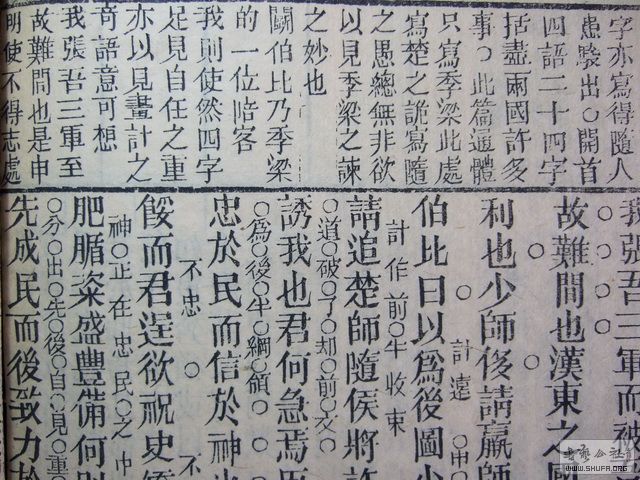 字亦寫得隨人
愚騃出○開首
四語二十四字
括盡兩國許多
事○此篇通體
只寫季梁此處
寫楚之詭寫隨
之愚總無非欲
以見季梁之諫
之妙也
鬭伯比乃季梁
的一位陪客
我則使然四字
足見自任之重
亦以見畫計之
奇語意可想
我張吾三軍至
故難間也是申
明使不得志處
我張吾三軍而被
故難間也漢東之國
利也少師後請羸師
計遠 申
伯比曰以爲後圖少
計作前半收束
請追楚師隨侯將許
道破了却前文
誘我也君何急焉臣
爲後半綱領
忠於民而信於神也
不忠 不
餒而君逞欲祝史矯
神 正在忠民之中
肥腯粢盛豐備何則
分出先後自見重
先成民而後致力於
WWW.SHUFA.ORG